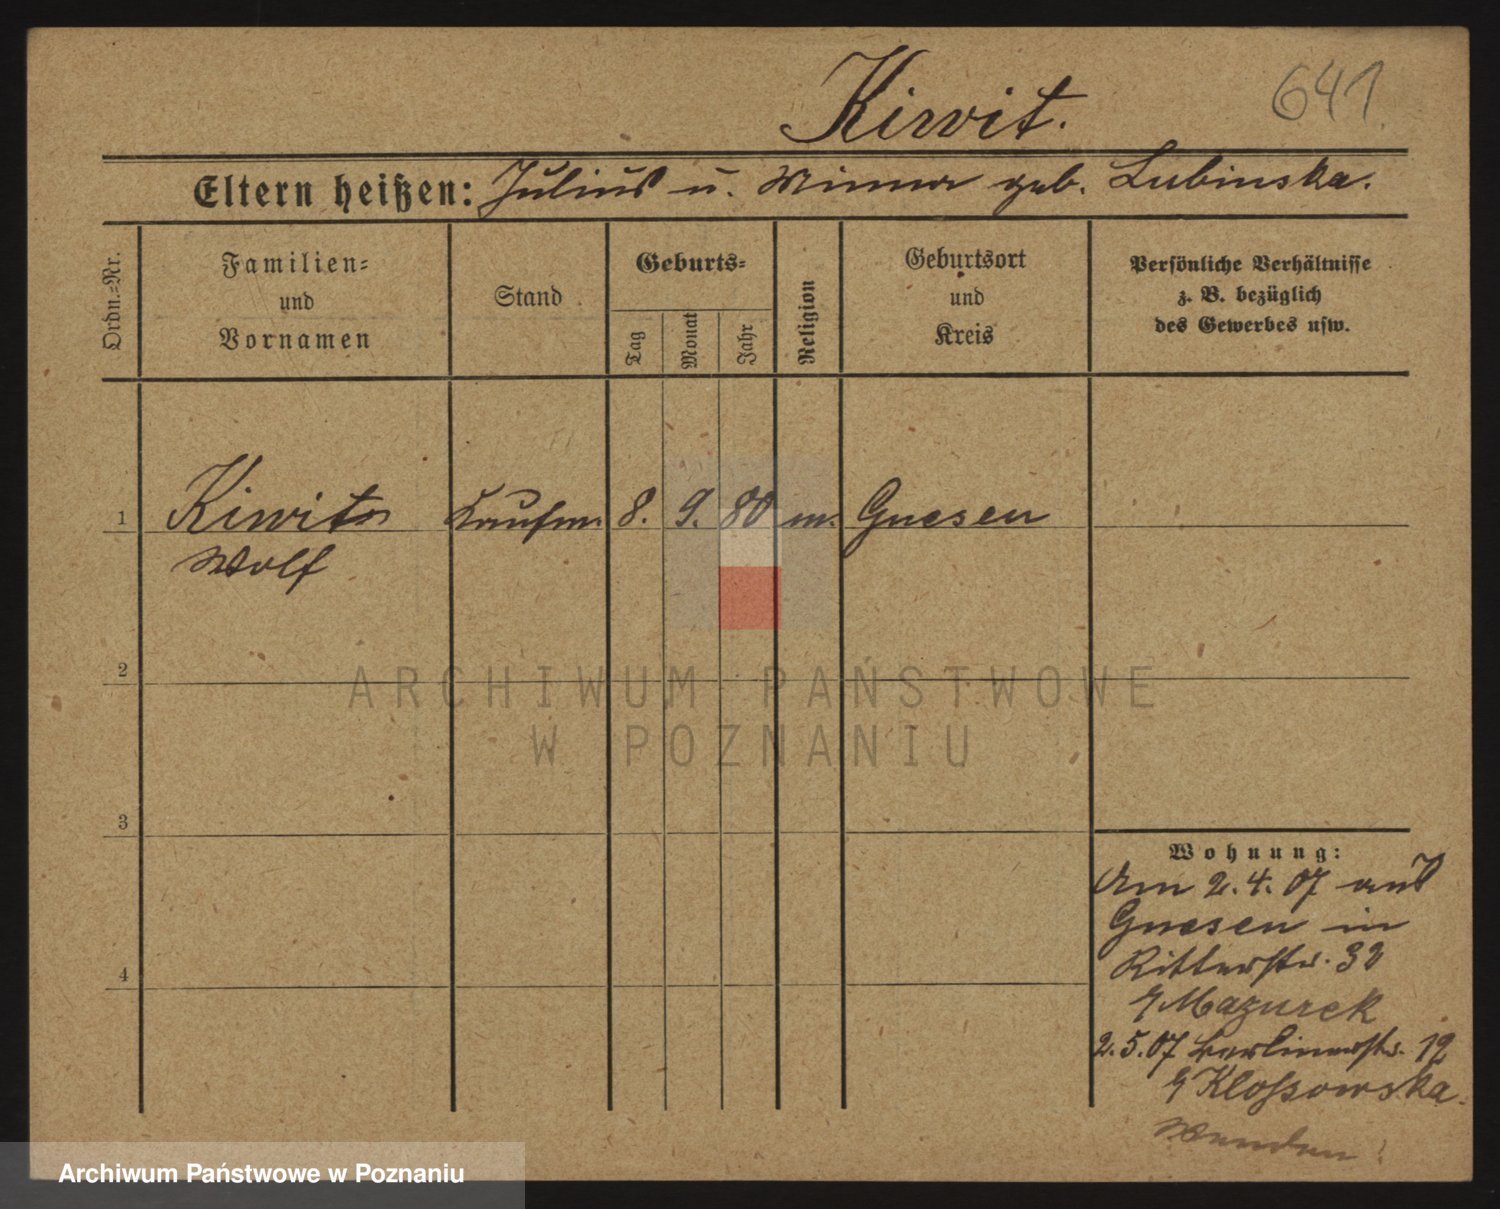 Kiwit.
641
Eltern heißen: Julius u. Minna geb. Lubinska.
Ordn.-Nr.
Familien-
und
Vornamen
Stand
Geburts-
Tag
Monat
Jahr
Religion
Geburtsort
und
Kreis
Persönliche Verhältnisse
z. B. bezüglich
des Gewerbes usw.
1 Kiwit Kaufm. 8. 9. 80 m. Gnesen
Wolf
2
3
4
Wohnung:
Am 2.4.07 aus
Gnesen in
Ritterstr. 32
Mazurek
2.5.07 Berlinerstr. 12
Kloßowska.
Wenden!
ARCHIWUM PAŃSTWOWE
W POZNANIU
Archiwum Państwowe w Poznaniu